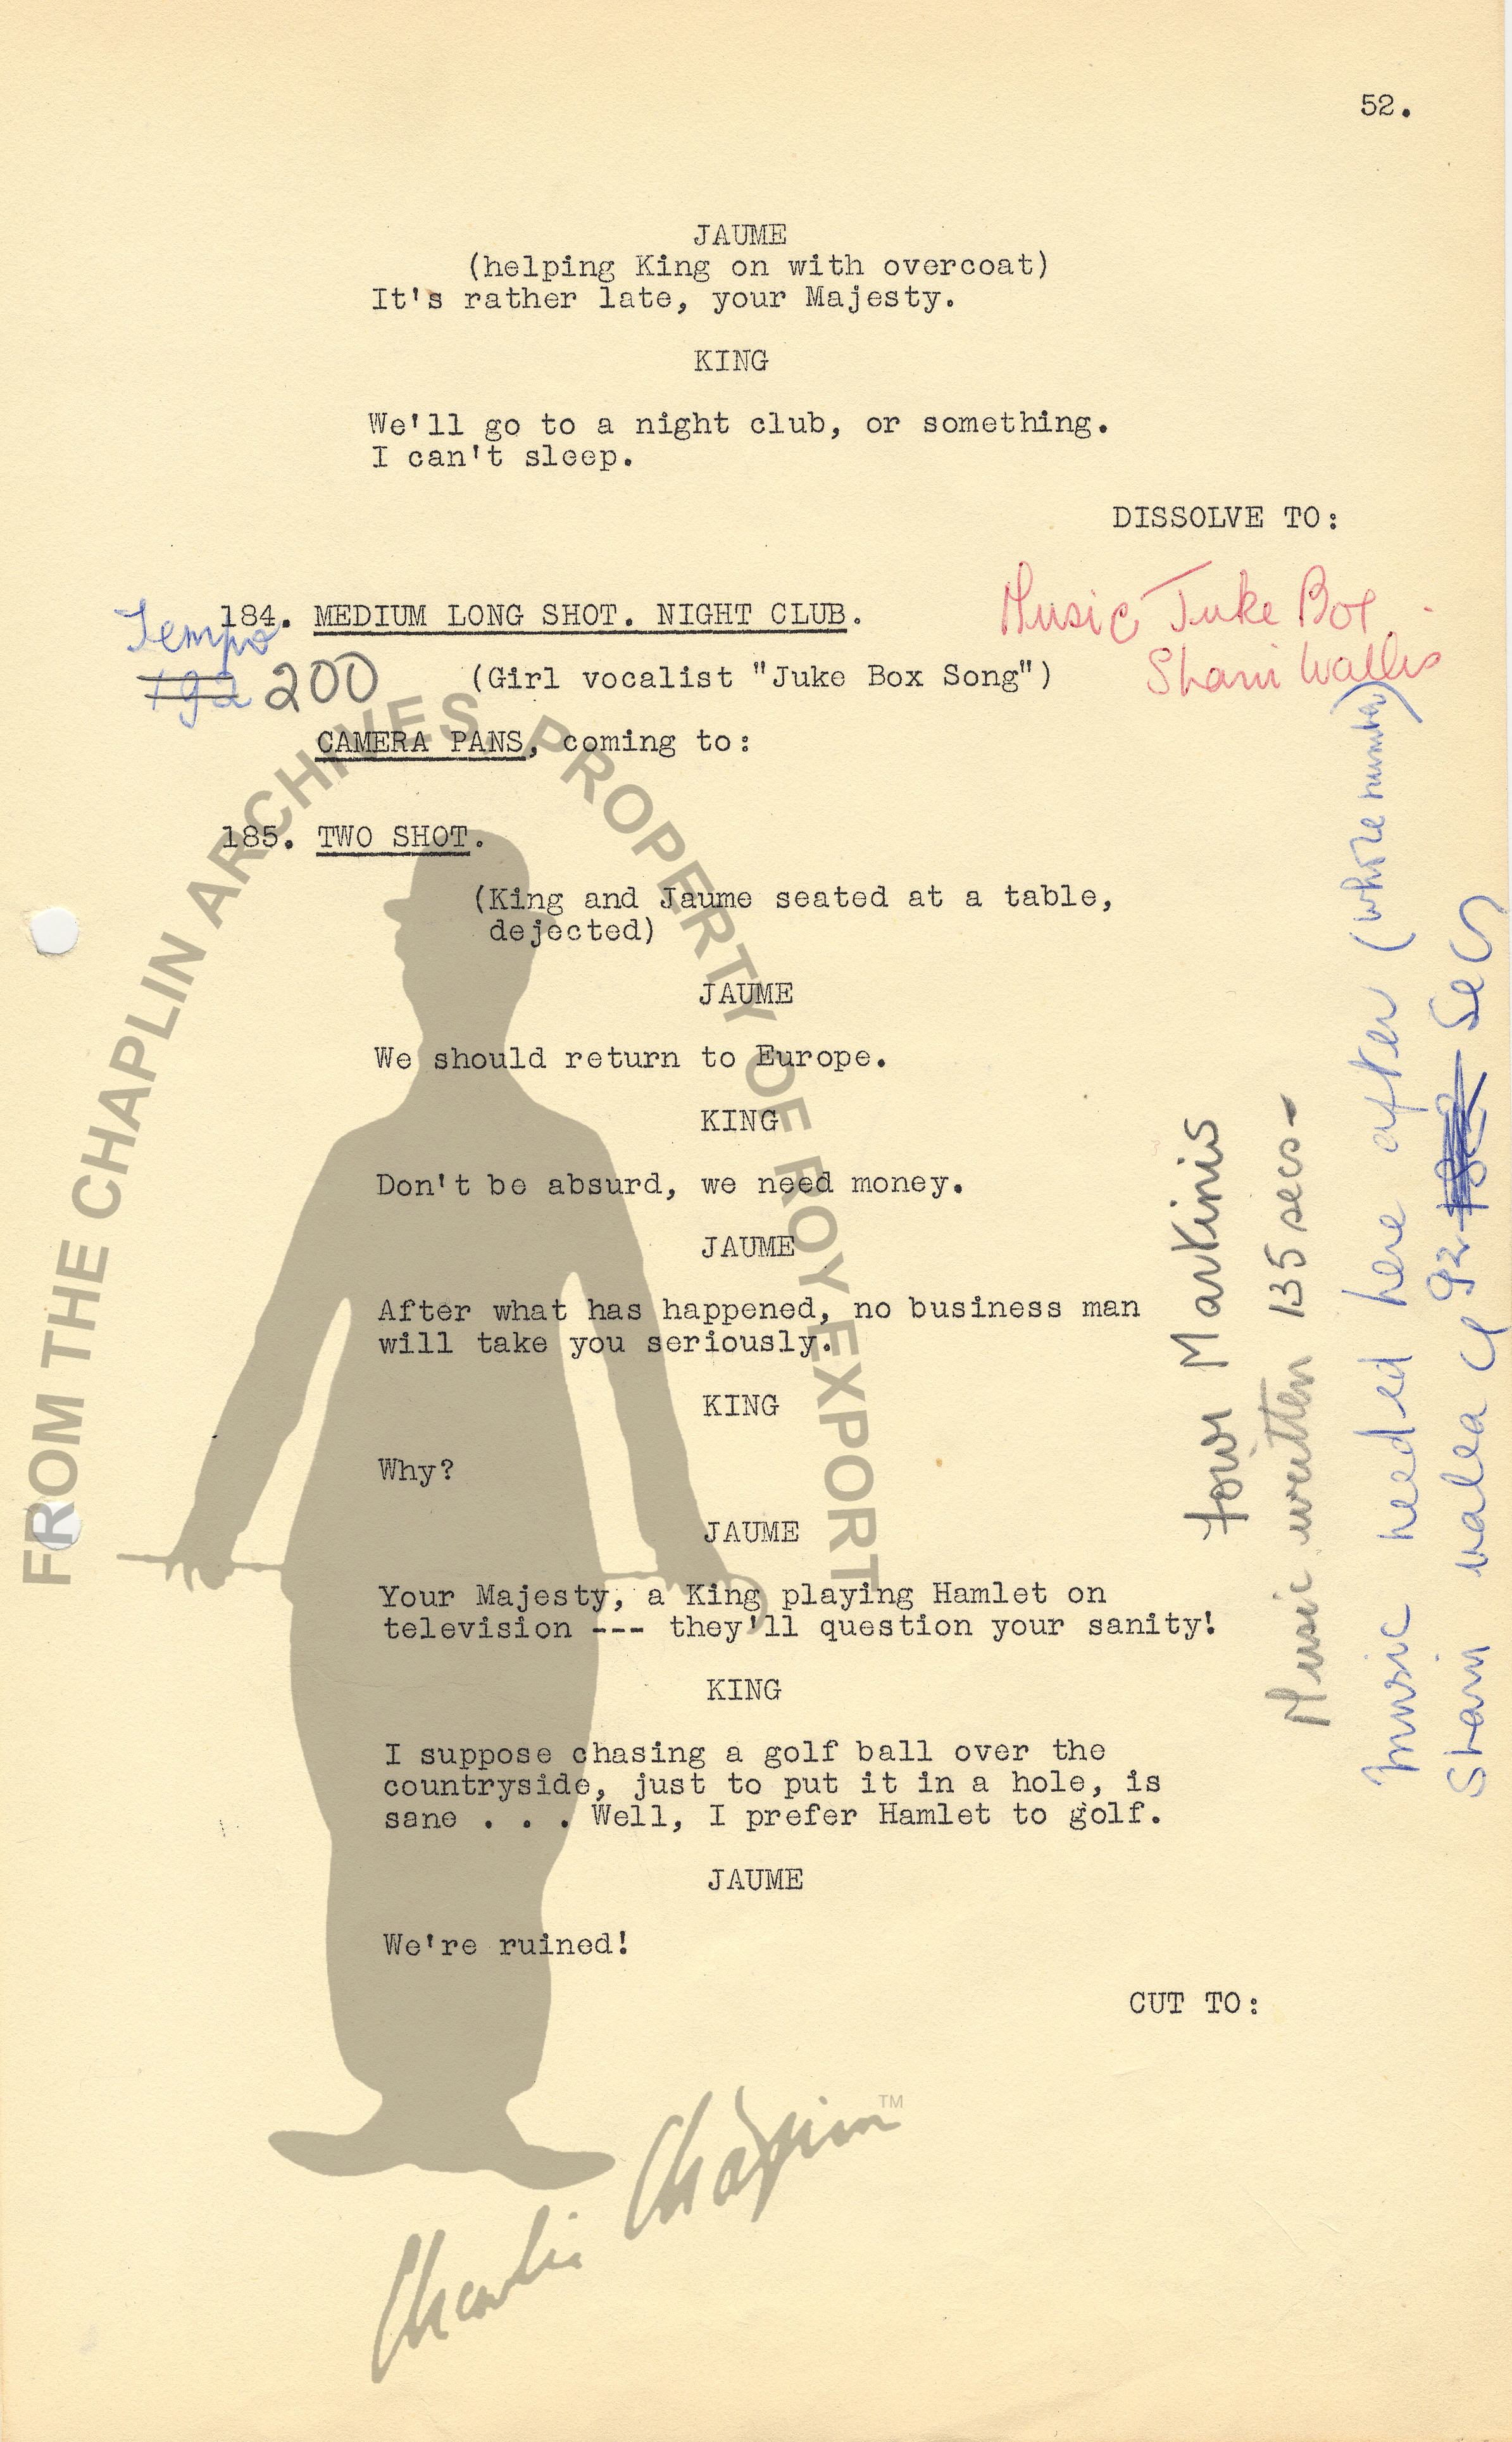 52.
JAUME
(helping King on with overcoat)
It's rather late, your Majesty.
KING
We'll go to a night club, or something.
I can't sleep.
DISSOLVE TO:
Tempo
184. MEDIUM LONG SHOT. NIGHT CLUB.
Music Juke Box.
Shani Wallis
192 200
(Girl vocalist "Juke Box Song")
CAMERA PANS, coming to:
185. TWO SHOT.
(King and Jaume seated at a table,
dejected)
JAUME
We should return to Europe.
KING
Don't be absurd, we need money.
JAUME
After what has happened, no business man
will take you seriously.
KING
Why?
JAUME
Your Majesty, a King playing Hamlet on
television --- they'll question your sanity!
KING
I suppose chasing a golf ball over the
countryside, just to put it in a hole, is
sane . . . Well, I prefer Hamlet to golf.
JAUME
We're ruined!
CUT TO:
four Markinis
Music written 135 secs-
music needed here after (whole number)
Shani 92 Secs
FROM THE CHAPLIN ARCHIVES. PROPERTY OF ROY EXPORT
Charlie Chaplin TM